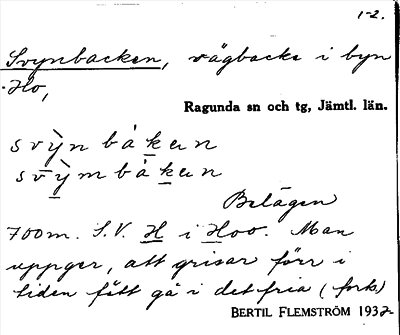 1-2.
Svynbacken, vägbacke i byn
Ho,
Ragunda sn och tg, Jämtl. län.
svỳn bàkɐn
sv̄ỳm bàkɐn
Belägen
700 m. S.V. H i Hoo. Man
uppger, att grisar förr i
tiden fått gå i det fria (forts)
BERTIL FLEMSTRÖM 1932